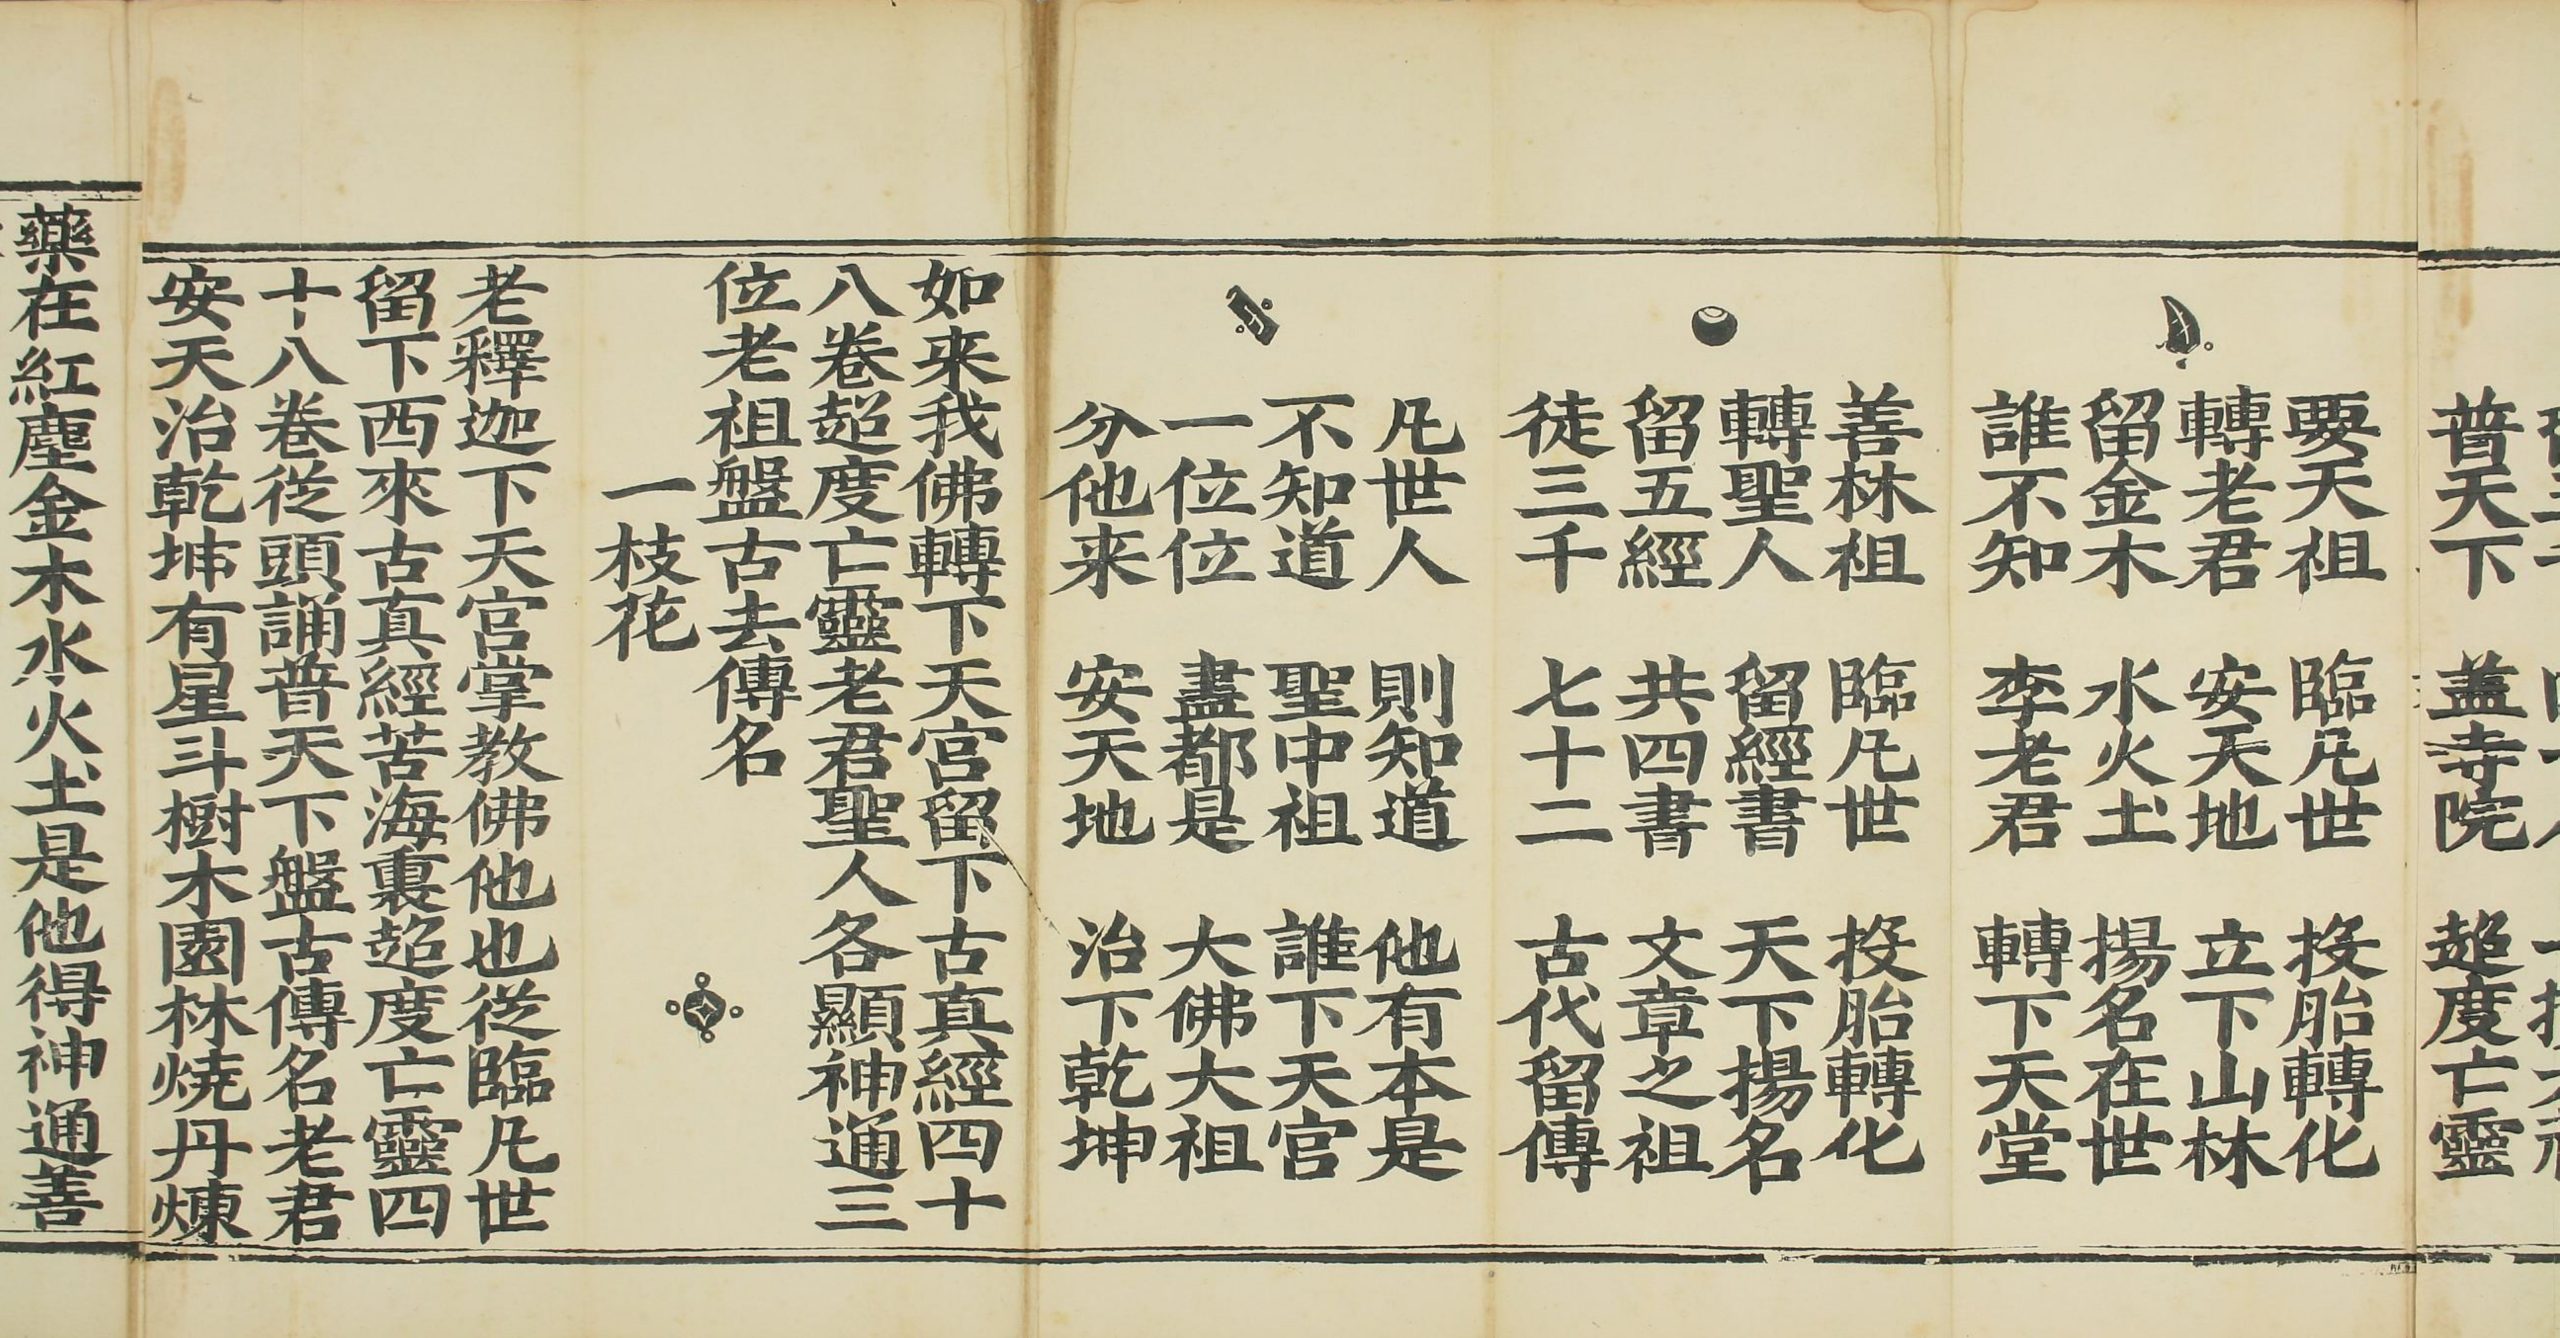 普天下 盖寺院 超度亡靈
要天祖 臨凡世 投胎轉化
轉老君 安天地 立下山林
留金木 水火土 揚名在世
誰不知 李老君 轉下天堂
善林祖 臨凡世 投胎轉化
轉聖人 留經書 天下揚名
留五經 共四書 文章之祖
徒三千 七十二 古代留傳
凡世人 則知道 他有本是
不知道 聖中祖 誰下天宮
一位位 盡都是 大佛大祖
分他来 安天地 治下乾坤
如来我佛轉下天宮留下古真經四十
八卷超度亡靈老君聖人各顯神通三
位老祖盤古去傳名
一枝花
老釋迦下天宮掌教佛他也從臨凡世
留下西來古真經苦海裏超度亡靈四
十八卷從頭誦普天下盤古傳名老君
安天治乾坤有星斗樹木園林燒丹煉
藥在紅塵金木水火土是他得神通善